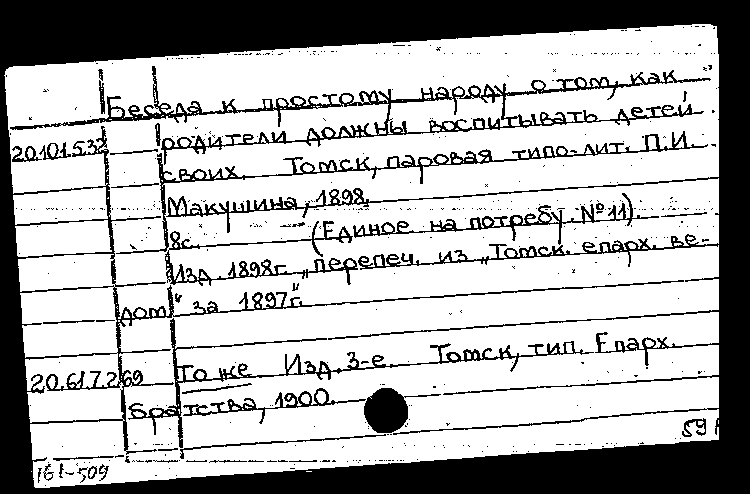 Беседа к простому народу о том, как
20.101.5.32 родители должны воспитывать детей
своих. Томск, паровая типо-лит. П.И.
Макушина, 1898.
8с. (Единое на потребу. №11).
Изд. 1898г. „перепеч. из „Томск. епарх. ве-
дом“ за 1897г“.
20.61.7.269 То же Изд. 3-е. Томск, тип. Епарх.
братства, 1900.
59
161-509